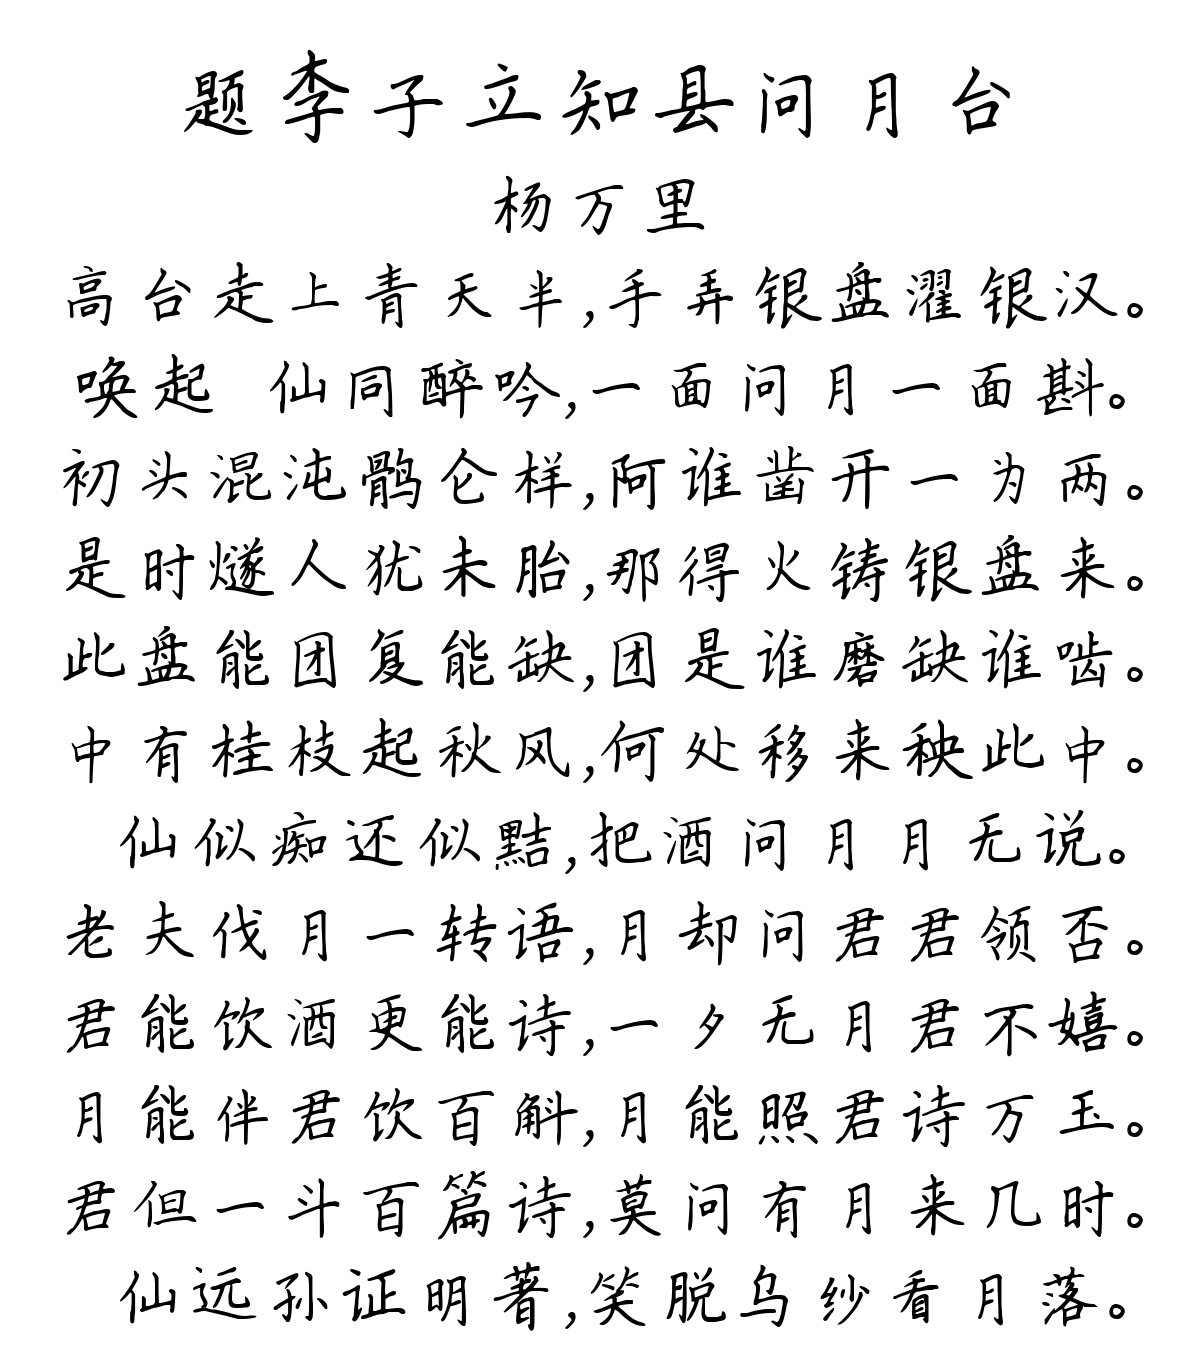 题李子立知县问月台
杨万里
高台走上青天半,手弄银盘濯银汉。
唤起 仙同醉吟,一面问月一面斟。
初头混沌鹘仑样,阿谁凿开一为两。
是时燧人犹未胎,那得火铸银盘来。
此盘能团复能缺,团是谁磨缺谁啮。
中有桂枝起秋风,何处移来秧此中。
仙似痴还似黠,把酒问月月无说。
老夫伐月一转语,月却问君君领否。
君能饮酒更能诗,一夕无月君不嬉。
月能伴君饮百斛,月能照君诗万玉。
君但一斗百篇诗,莫问有月来几时。
仙远孙证明著,笑脱乌纱看月落。